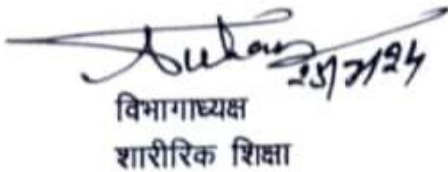 25/7/24
विभागाध्यक्ष
शारीरिक शिक्षा